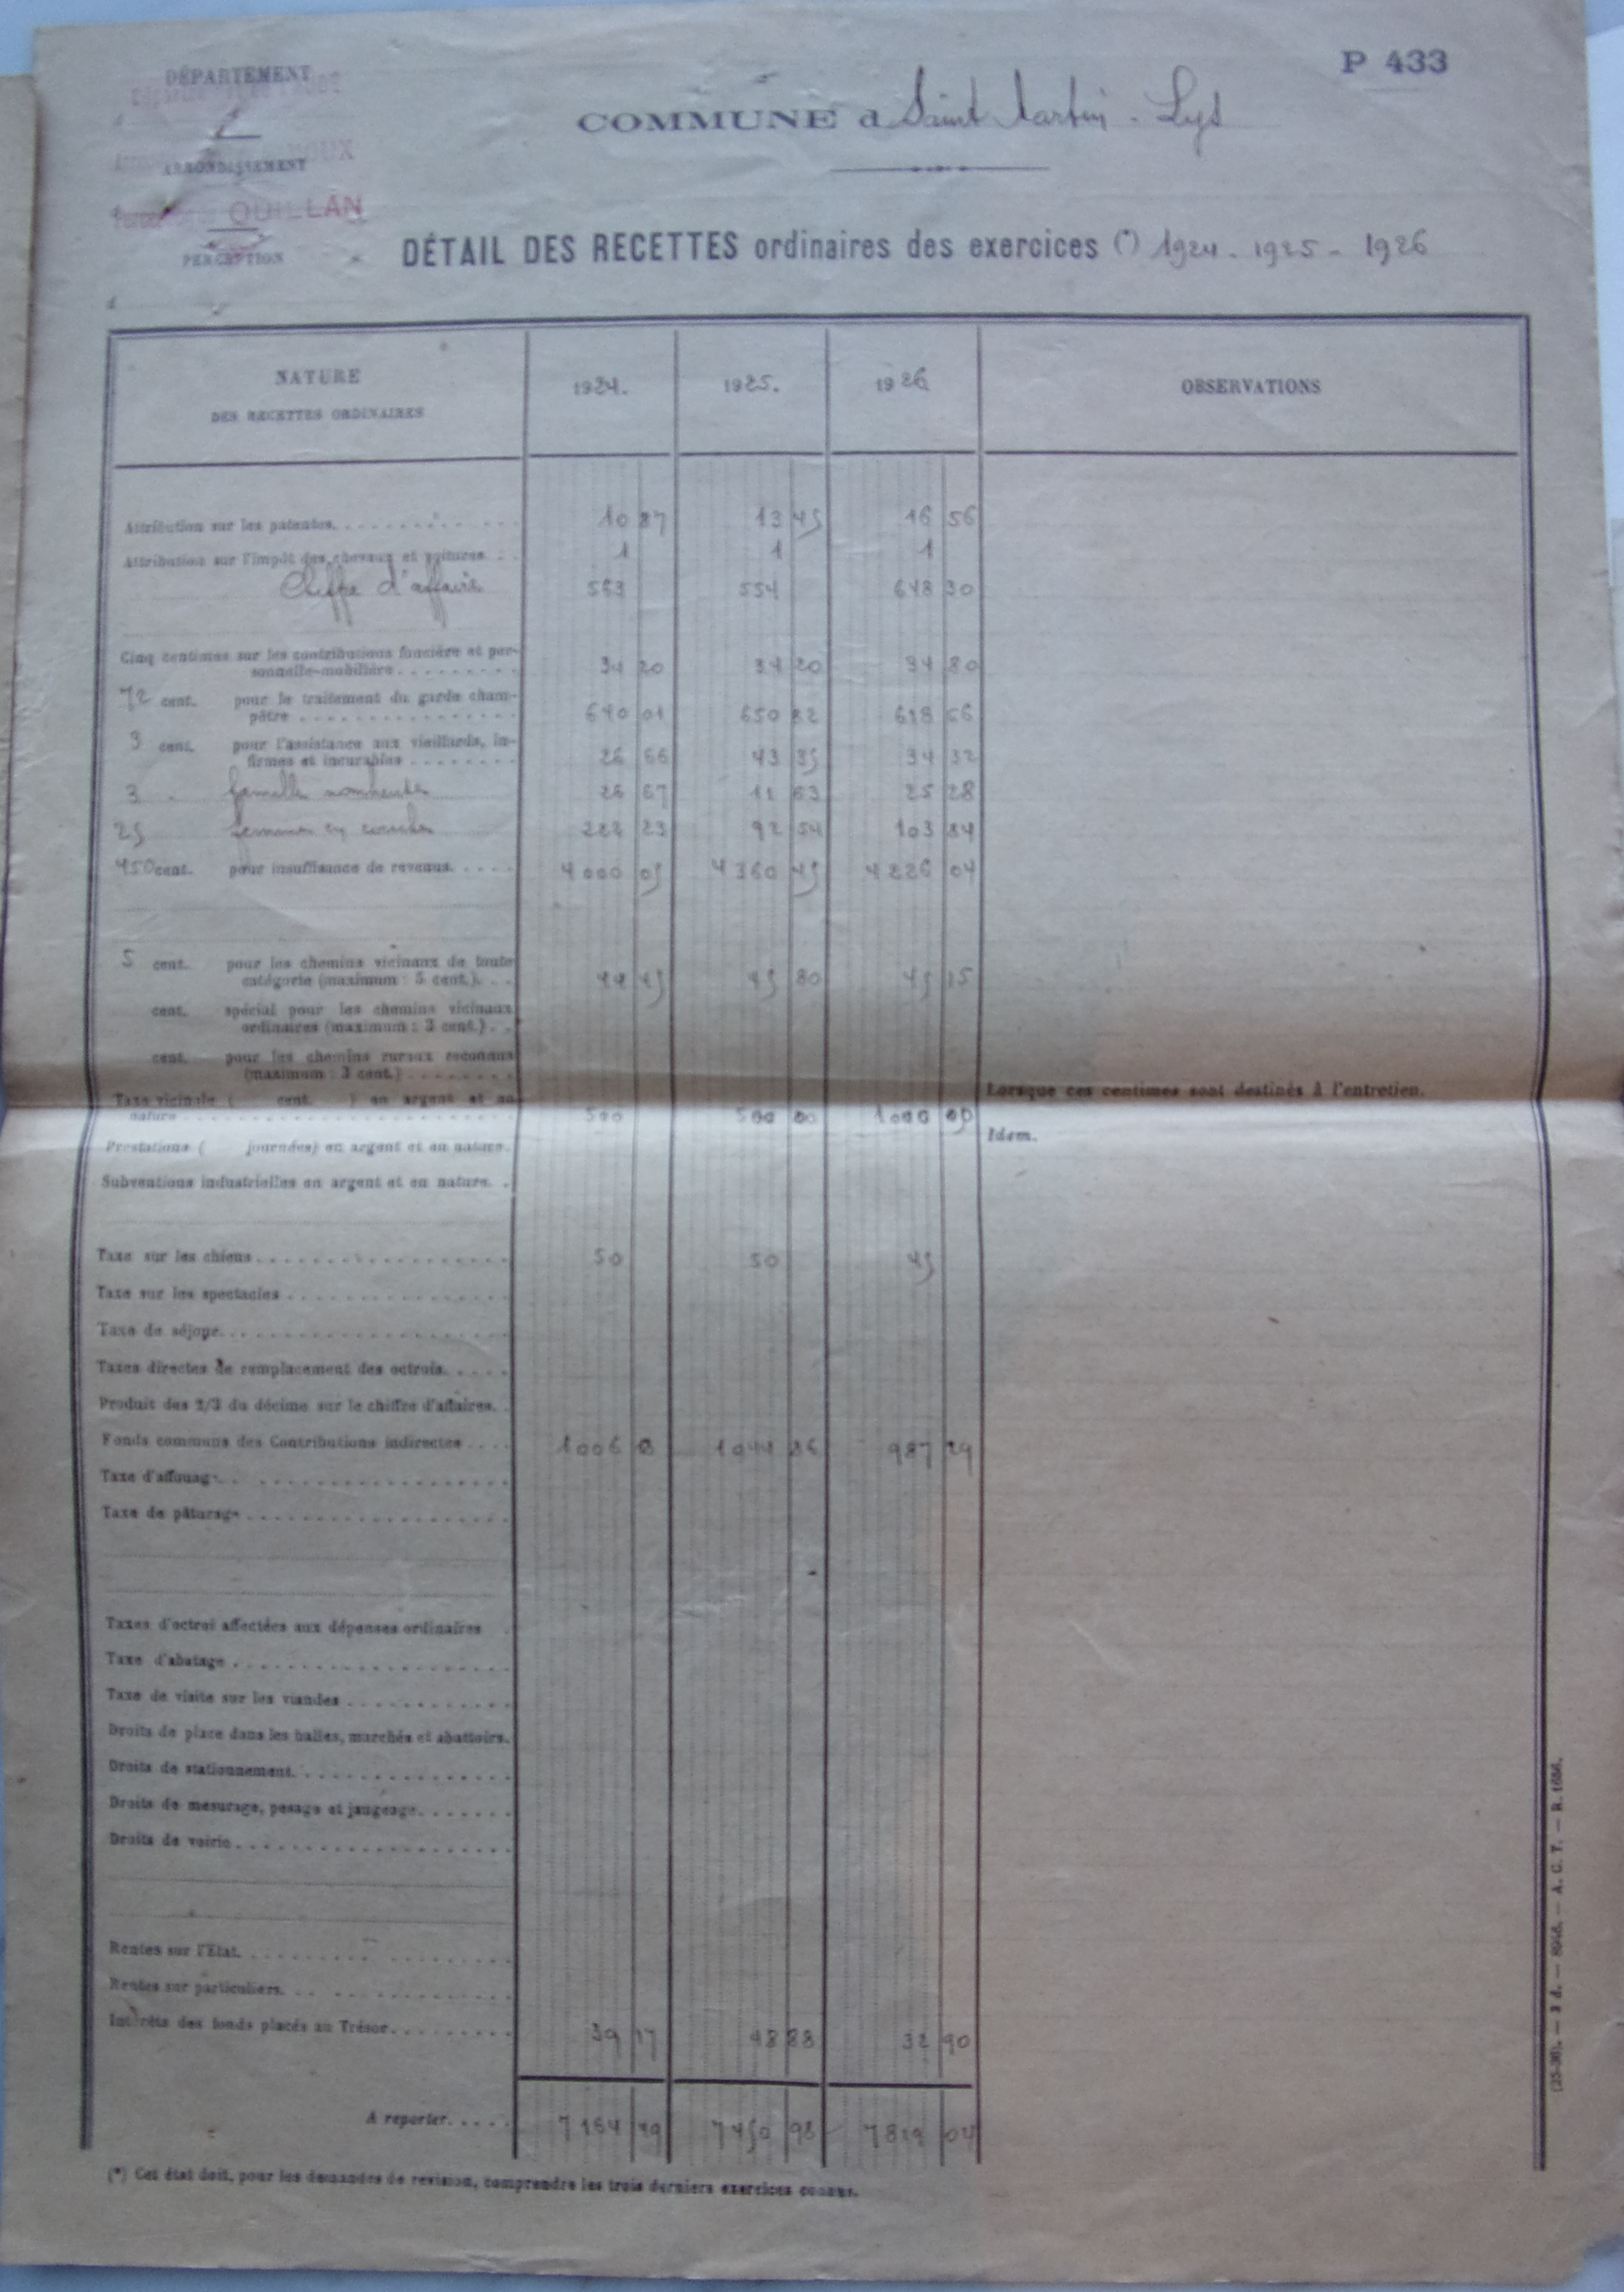 P 433
DÉPARTEMENT
COMMUNE d Saint Martin - Lys
ARRONDISSEMENT
QUILLAN
PERCEPTION
DÉTAIL DES RECETTES ordinaires des exercices (*) 1924 - 1925 - 1926
NATURE
DES RECETTES ORDINAIRES 1924. 1925. 1926 OBSERVATIONS
Attribution sur les patentes. 10 87 13 45 16 56
Attribution sur l'impôt des chevaux et voitures 1 1 1
Chiffre d'affaire 563 554 648 30
Cinq centimes sur les contributions foncière et per-
sonnelle-mobilière 34 20 34 20 34 80
72 cent. pour le traitement du garde cham-
pêtre 640 01 650 82 618 56
3 cent. pour l'assistance aux vieillards, in-
firmes et incurables 26 66 43 35 34 32
3 famille 26 67 11 63 25 28
25 femmes en couches 222 23 92 54 103 84
450 cent. pour insuffisance de revenus. 4000 05 4360 45 4226 04
5 cent. pour les chemins vicinaux de toute
catégorie (maximum : 5 cent.). 44 45 45 80 45 15
cent. spécial pour les chemins vicinaux
ordinaires (maximum : 3 cent.).
cent. pour les chemins ruraux reconnus
(maximum : 3 cent.) Lorsque ces centimes sont destinés à l'entretien.
Taxe vicinale ( cent. ) en argent et en
nature 500 500 00 1000 00
Prestations ( journées) en argent et en nature. Idem.
Subventions industrielles en argent et en nature.
Taxe sur les chiens 50 50 45
Taxe sur les spectacles
Taxe de séjour.
Taxes directes de remplacement des octrois.
Produit des 2/3 du décime sur le chiffre d'affaires.
Fonds communs des Contributions indirectes 1006 1044 86 987 29
Taxe d'affouage.
Taxe de pâturage
Taxes d'octroi affectées aux dépenses ordinaires
Taxe d'abatage
Taxe de visite sur les viandes
Droits de place dans les halles, marchés et abattoirs.
Droits de stationnement.
Droits de mesurage, pesage et jaugeage.
Droits de voirie
Rentes sur l'État.
Rentes sur particuliers.
Intérêts des fonds placés au Trésor. 39 17 48 88 32 90
A reporter. 7164 49 7450 98 7819 04
(*) Cet état doit, pour les demandes de revision, comprendre les trois derniers exercices connus.